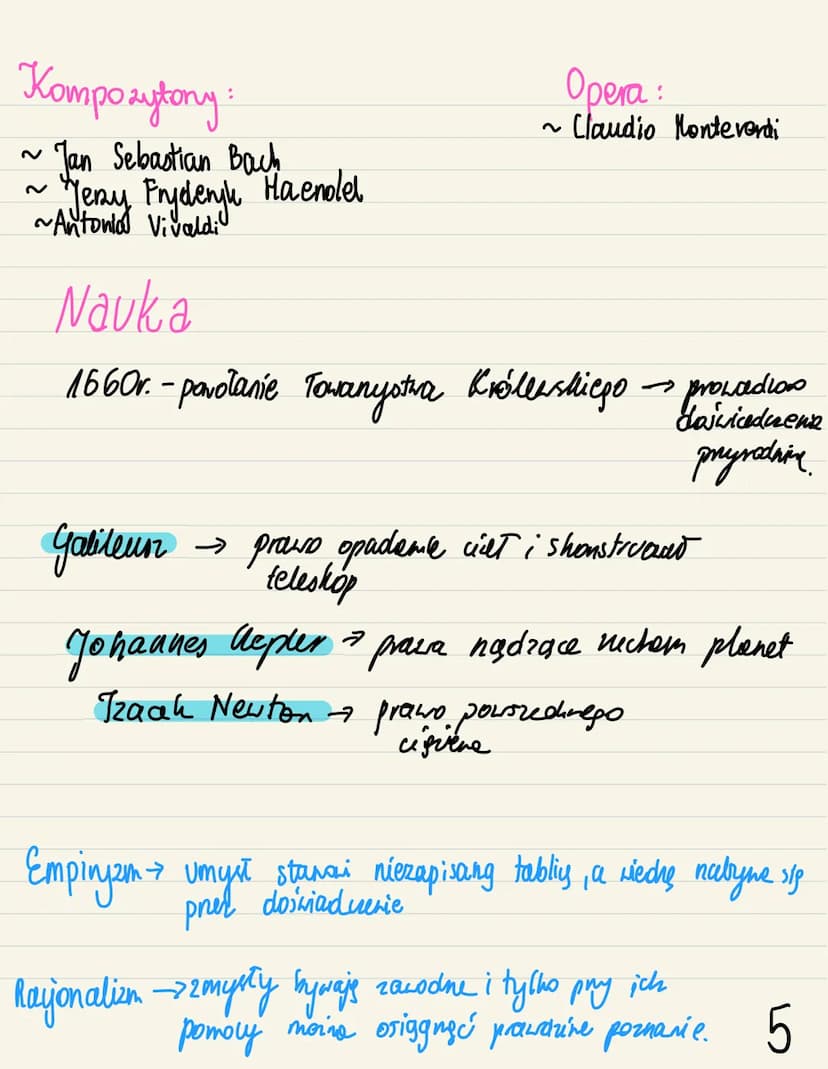 Kompozytorzy:
~ Jan Sebastian Bach
~ Jerzy Fryderyk Haendel
~ Antonio Vivaldi
Opera:
~ Claudio Monteverdi
Nauka
1660r. - powołanie Towarzystwa Królewskiego → prowadzono
doświadczenia
przyrodnicze.
Galileusz → prawo opadanie ciał i skonstruował
teleskop
Johannes Kepler → prawa rządzące ruchem planet
Izaak Newton → prawo powszechnego
ciążenia
Empiryzm → umysł stanowi niezapisaną tablicę, a wiedzę nabywa się
przez doświadczenie
Racjonalizm → zmysły bywają zawodne i tylko przy ich
pomocy można osiągnąć prawdziwe poznanie.
5